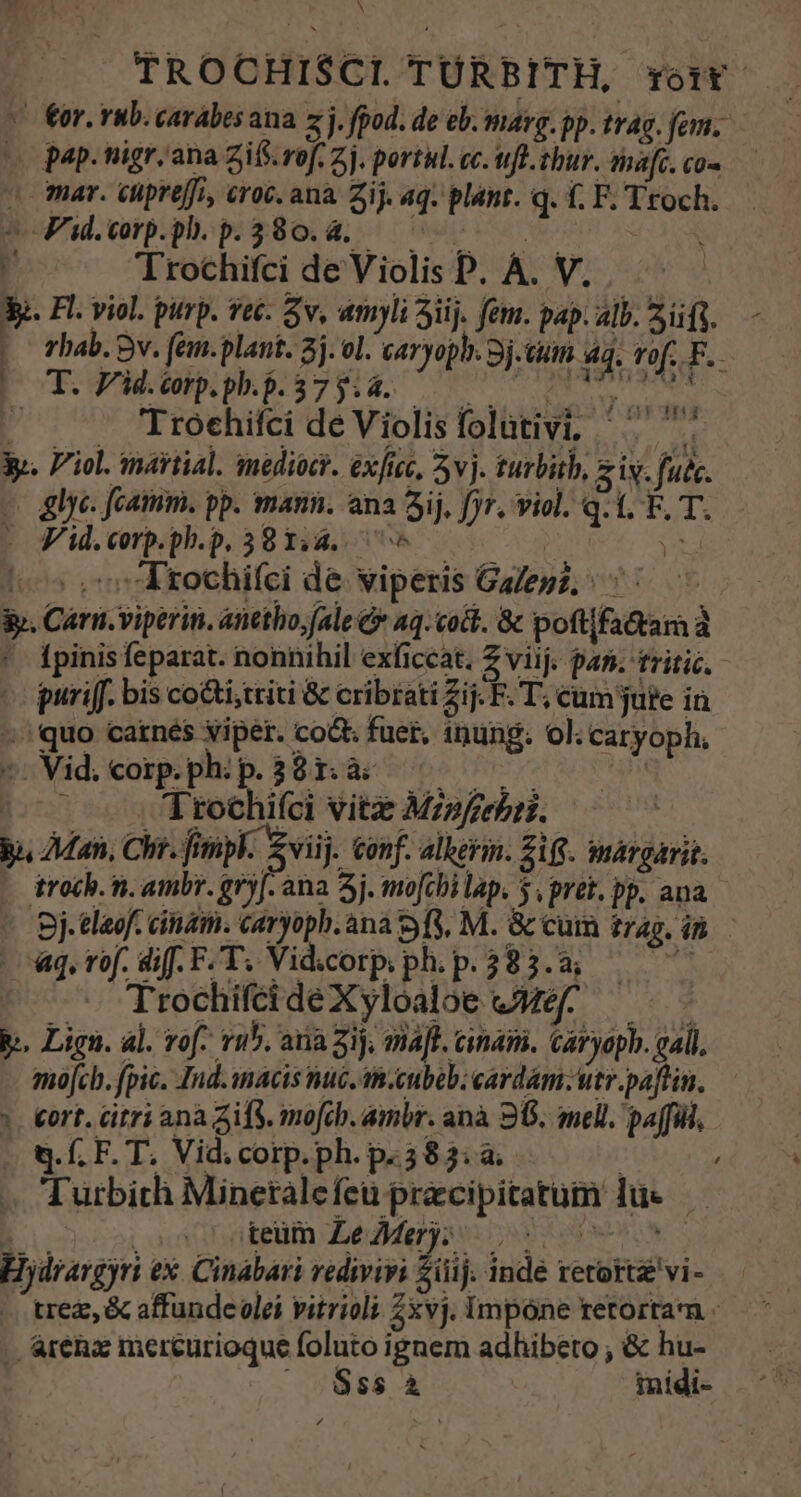 TROCHISCI TURBITH, 1011
cor. rub. carabes ana ʒj. spod. de eb. marg. pp. trag. sem.
pap. nigr. ana ʒiß. ros. ʒj. portul. cc. ust. thur. mast. co-
mar. cupressi, croc. ana ʒij. aq. plant. q. s. F. Troch.
Vid. corp. ph. p. 380. a.
Trochisci de Violis P. A. V.
℞. Fl. viol. purp. rec. ʒv, amyli ʒiij. sem. pap. alb. ʒiiß.
rhab. ℈v. sem. plant. ʒj. ol. caryoph. ℈j. cum aq. ros. F.
T. Vid. corp. ph. p. 375. a.
Trochisci de Violis solutivi.
℞. Viol. martial. mediocr. exsicc, ʒvj. turbith, ʒiv. succ.
glyc. scamm. pp. mann. ana ʒij, syr. viol. q. s. F. T.
Vid. corp. ph. p. 381. a.
Trochisci de viperis Galeni.
℞. Carn. viperin. anetho, sale & aq. coct. & postfactam à
spinis separat. nonnihil exsiccat. ℥viij. pan. tritic.
puriss. bis cocti, triti & cribrati ℥ij. F. T. cum jure in
quo carnes viper. coct. fuer, inung. ol. caryoph.
Vid. corp. ph. p. 381. a.
Trochisci vitæ Minsichti.
℞. Man, Chr. simpl. ℥viij. conf. alkerm. ℥iß. margarit.
troch. n. ambr. grys. ana ʒj. moschi lap. 5, pret. pp. ana
℈j. elaos. cinam. caryoph. ana ℈ß, M. & cum trag. in
aq. ros. diss. F. T. Vid. corp. ph. p. 383. a,
Trochisci de Xyloaloe Mes.
℞. Lign. al. ros. rub. ana ʒij, mast. cinam. caryoph. gall.
mosch. spic. Ind. macis nuc. m. cubeb. cardam. utr. pastin.
cort. citri ana ʒiß. mosch. ambr. ana ℈ß. mell. passul,
q. s. F. T. Vid. corp. ph. p. 383. a.
Turbith Minerale seu præcipitatum lu-
teum Le Mery.
Hydrargyri ex Cinabari redivivi ℥iiij. inde retortæ vi-
treæ, & affunde olei vitrioli ℥xvj. Impone retortam
arenæ mercurioque soluto ignem adhibeto, & hu-
Sss 2 midi-